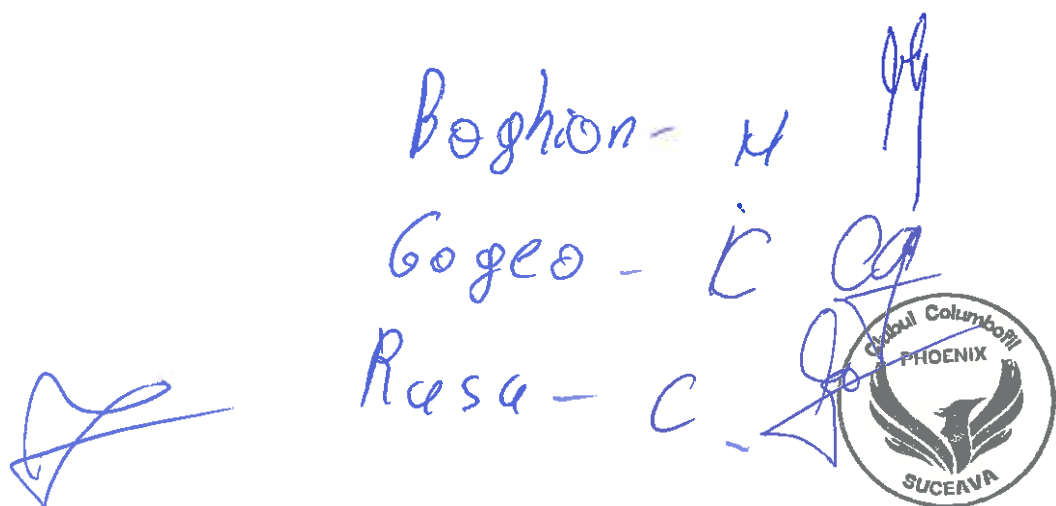 Boghion - M
Gogeo - C
Rusu - C -
Clubul Columbofil
PHOENIX
SUCEAVA